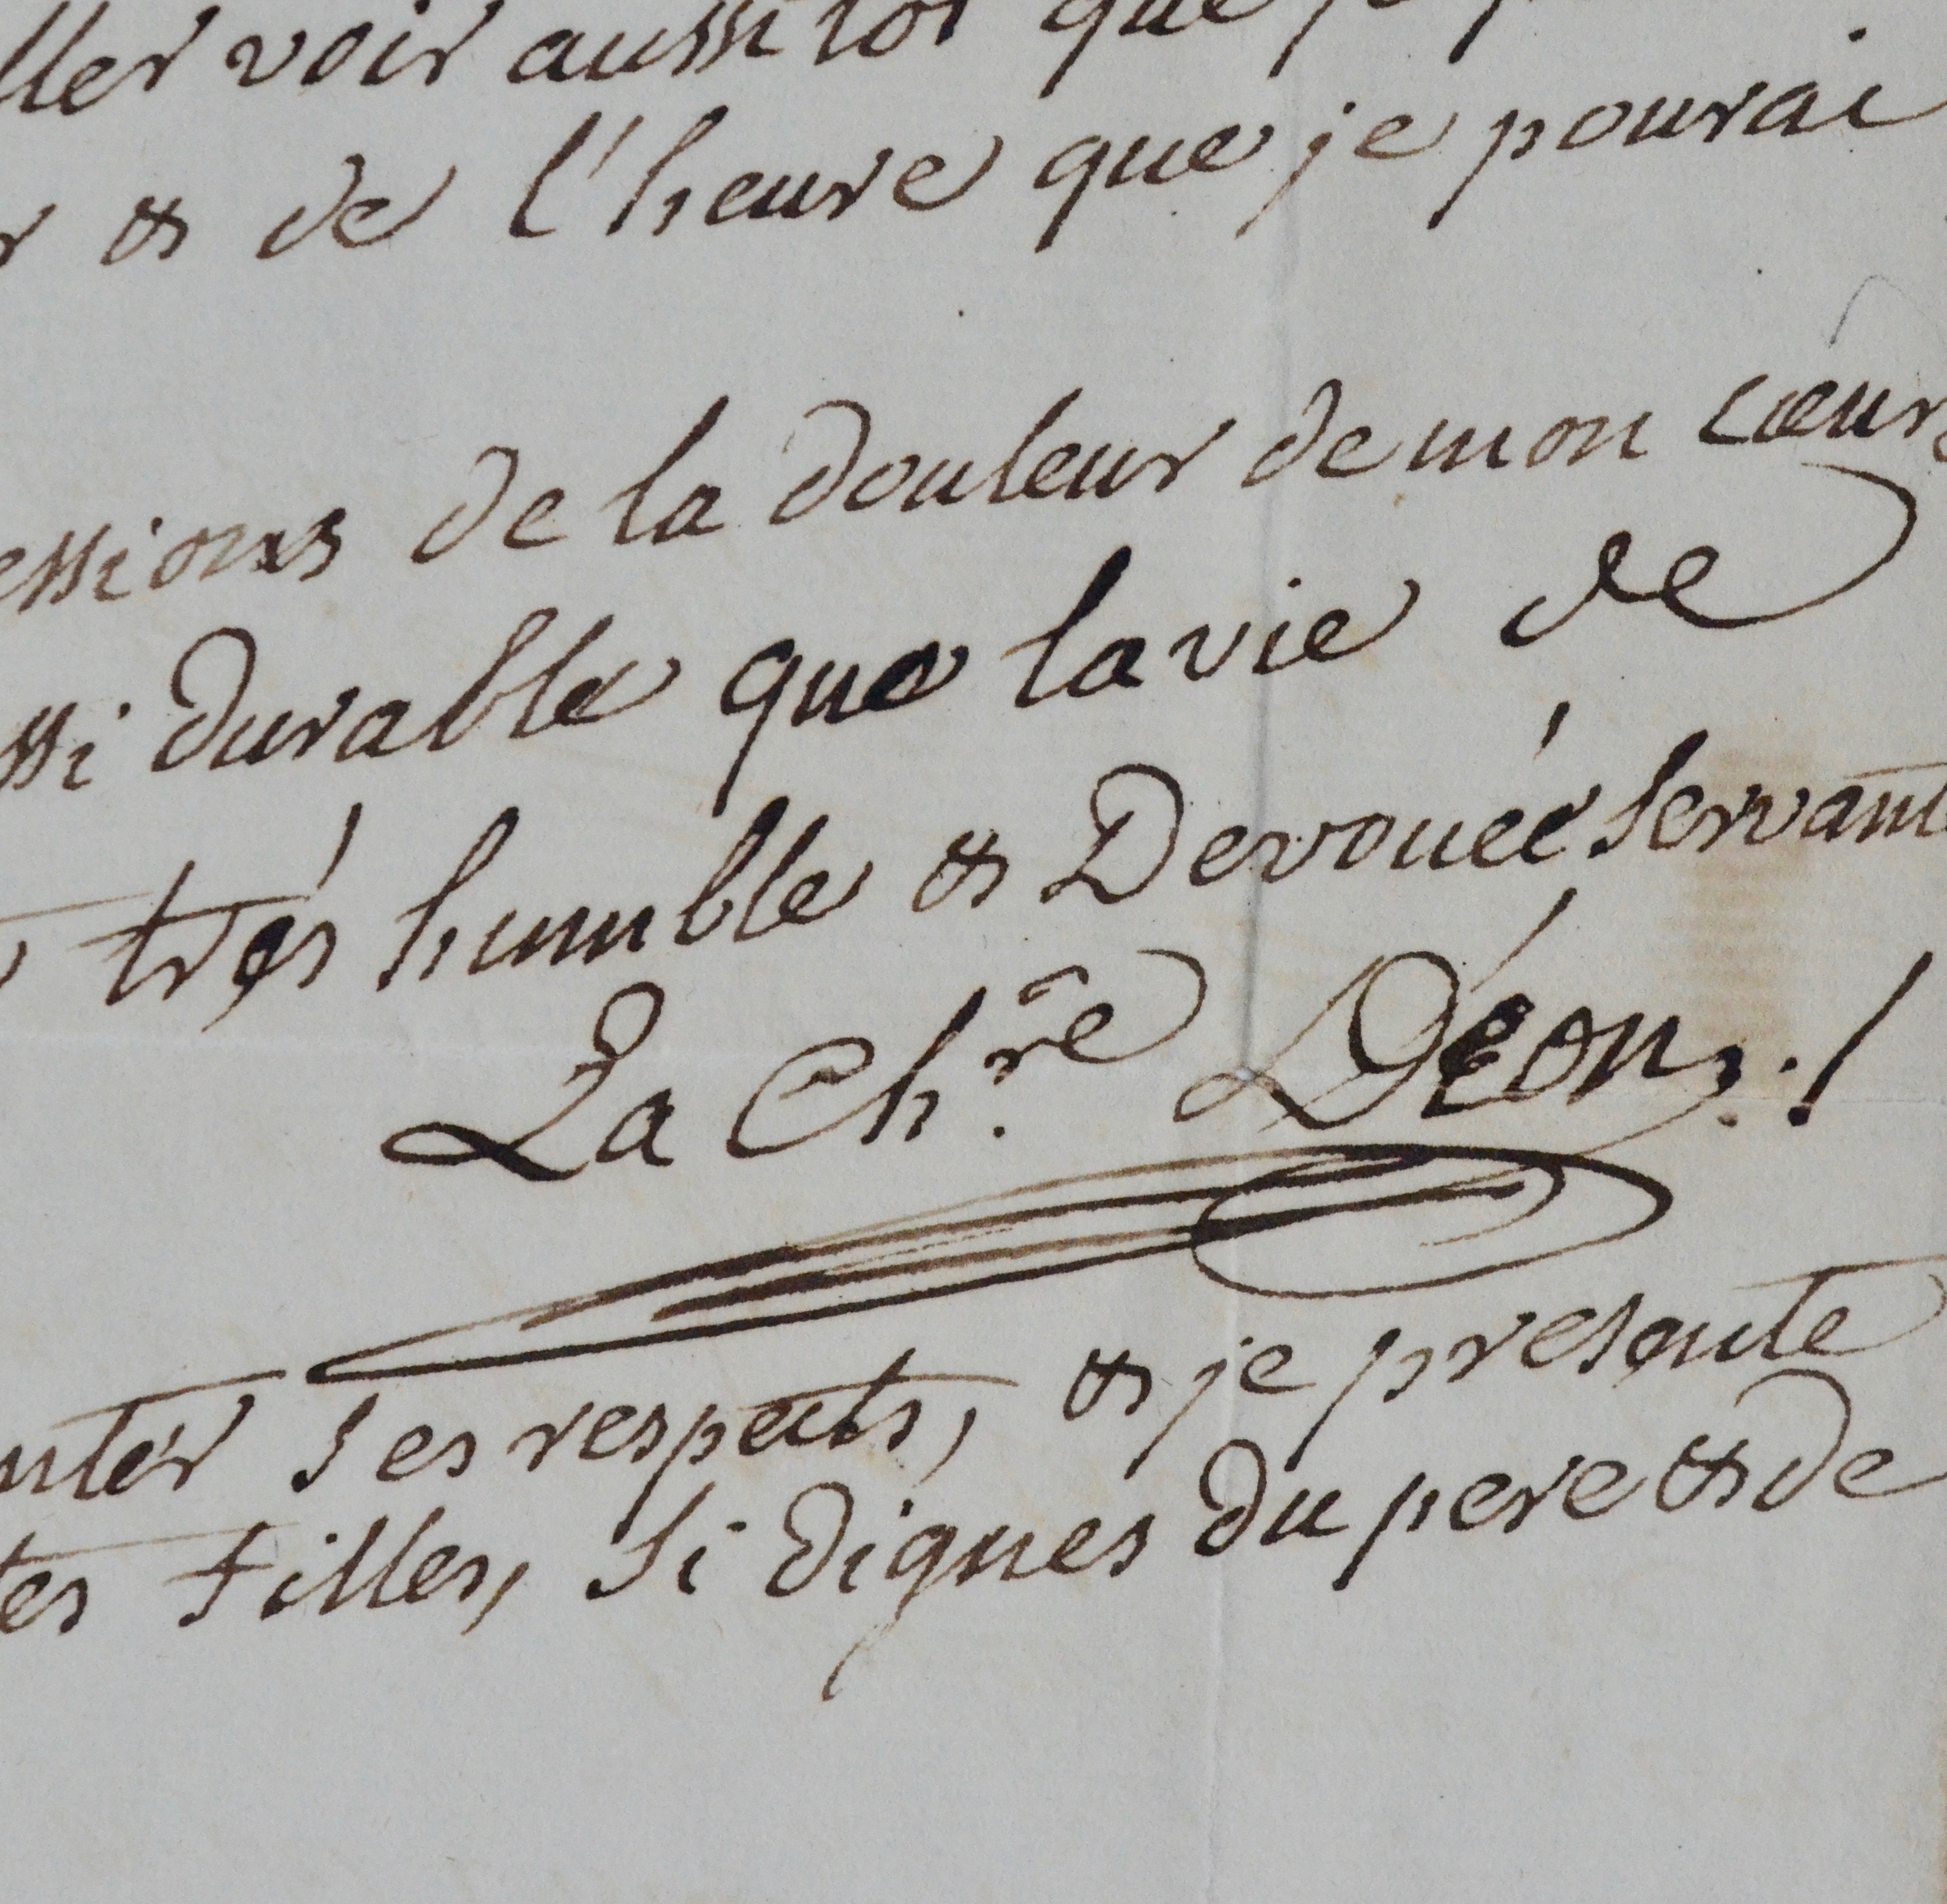 ller voir aussitot que je
r & de l'heure que je pourai
essions de la douleur de mon cœur,
ssi durable que la vie de
très humble & Devouée servante
La Chre Déon ./
nter ses respects, & je presente
tes filles, si dignes du pere & de